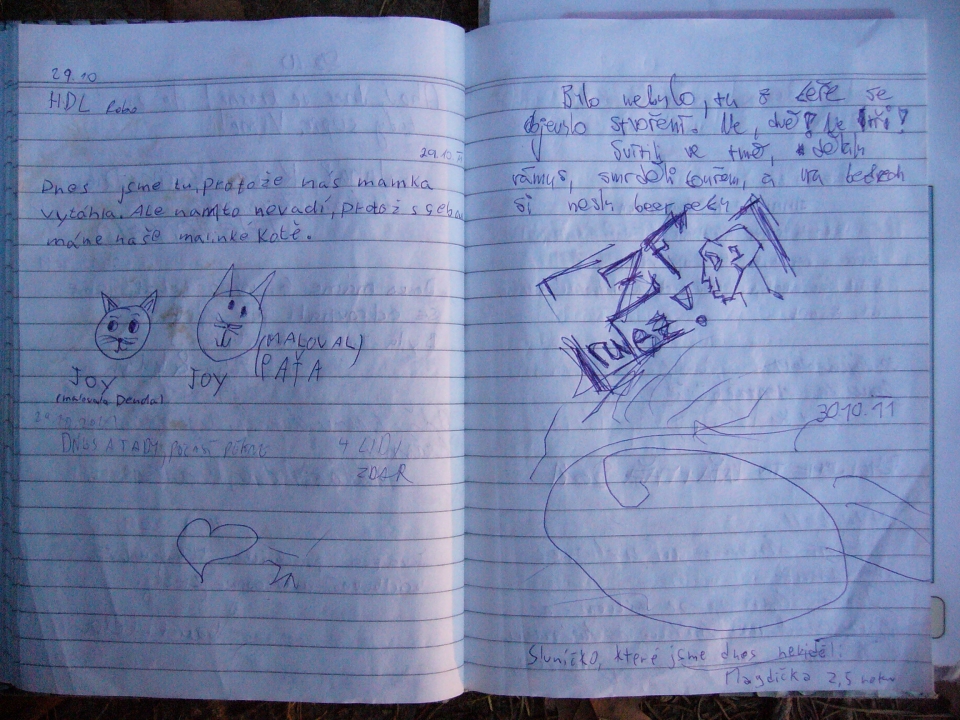 29.10
HDL Robo
29.10
Dnes jsme tu, protože nás mamka
vytáhla. Ale nám to nevadí, protož s sebou
máme naše malinké kotě.
JOY
(malovala Denda)
JOY
(MALOVAL)
PÁŤA
DNES A TADY, počasí pěkné
4 LIDI
ZDAR
Bylo nebylo, tu z keře se
objevilo stvoření. Ne, dvě! Ne tři!
Svítili ve tmě, dělali
rámus, smrděli kouřem, a na bedrech
si nesli
30.10.11
Sluníčko, které jsme dnes neviděli
Magdička 2,5 roku